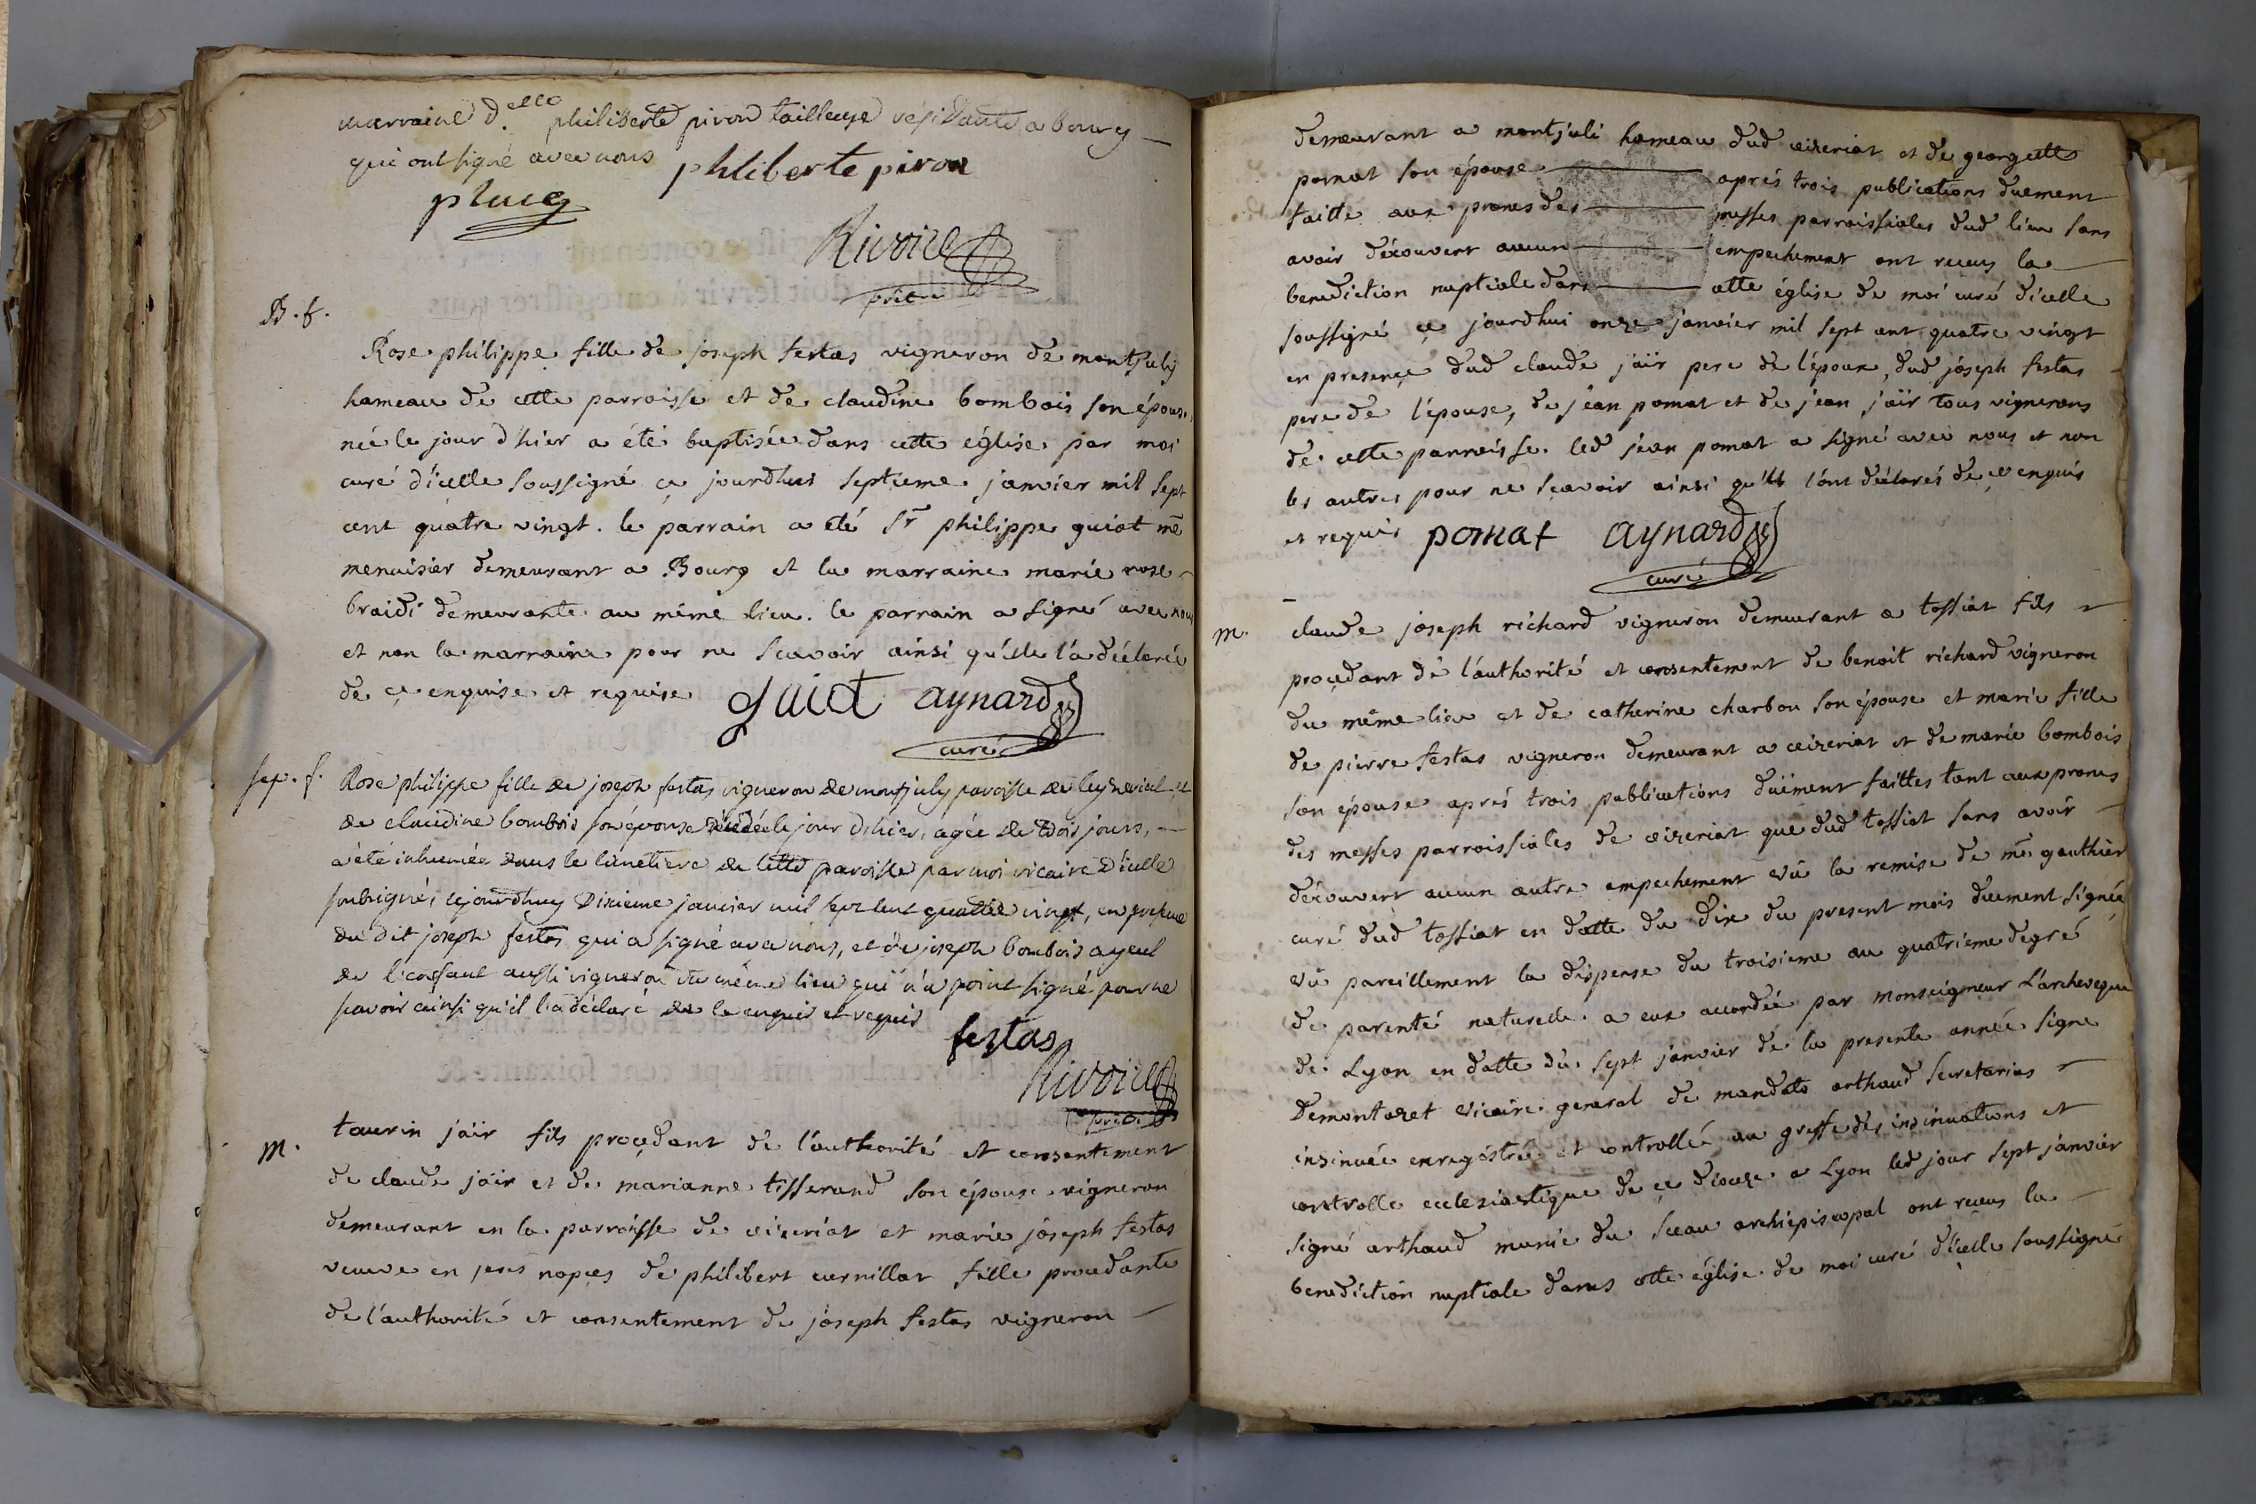 marraine d.elle philiberte piron tailleuse résidante a bourg
qui ont signé avec nous philiberte piron
Rivoire
prêtre
B. f.
Rose philippe fille de joseph festas vigneron de montjuly
hameau de cette parroisse et de claudine bombois son épouse
née le jour d'hier a été baptisée dans cette église par moi
curé d'icelle soussigné ce jourdhui septieme janvier mil sept
cent quatre vingt. le parrain a été Sr philippe guiot me
menuisier demeurant a Bourg et la marraine marie rose
braidi demeurante au même lieu. le parrain a signé avec nous
et non la marraine pour ne scavoir ainsi qu'elle l'a déclarée
de ce enquise et requise guiot aynard
curé
sep. f.
Rose philippe fille de joseph festas vigneron de montjuly paroisse de et
de claudine bombois son épouse décédée le jour d'hier, agée de trois jours,
a été inhumée dans le cimetiere de cette paroisse par moi vicaire d'icelle
soussigné, cejourdhuy dixieme janvier mil sept cent quatre vingt, en presence
du dit joseph festas qui a signé avec nous, et de joseph bombois ayeul
de l'enfant aussi vigneron du même lieu qui n'a point signé pour ne
scavoir ainsi qu'il l'a déclaré de ce enquis et requis
festas
Rivoire
prêtre
m.
taurin jaïr fils procedant de l'authorité et consentement
de claude jaïr et de marianne tisserand son épouse vigneron
demeurant en la parroisse de ceizeriat et marie joseph festas
veuve en jeres nopces de philibert curnillat fille procedante
de l'authorité et consentement de joseph festas vigneron
demeurant a montjuli hameau dud ceizeriat et de georgette
pomat son épouse après trois publications duement
faitte aux prones des messes parroissiales dud lieu sans
avoir découvert aucun empechement ont reçus la
benediction nuptiale dans cette église de moi curé d'icelle
soussigné ce jourdhui onze janvier mil sept cent quatre vingt
en presence dud claude jaïr pere de l'époux, dud joseph festas
pere de l'épouse, de jean pomat et de jean jaïr tous vignerons
de cette parroisse. led jean pomat a signé avec nous et non
les autres pour ne scavoir ainsi qu'ils l'ont déclarés de ce enquis
et requis pomat aynard
curé
m.
claude joseph richard vigneron demeurant a tossiat fils
procedant de l'authorité et consentement de benoit richard vigneron
du même lieu et de catherine charbon son épouse et marie fille
de pierre festas vigneron demeurant a ceizeriat et de marie bombois
son épouse après trois publications duëment faittes tant aux prones
des messes parroissiales de ceizeriat que dud tossiat sans avoir
découvert aucun autre empechement vû la remise de me gauthier
curé dud tossiat en datte du dix du present mois duement signée
vû pareillement la dispense du troisieme au quatrieme degré
de parenté naturelle a eux accordée par monseigneur L'archeveque
de Lyon en datte du sept janvier de la presente année signe
Demontazet vicaire general de mandato arthaud secretarius
insinuée enregistrée et controllée au greffe des insinuations et
controlle ecclesiastique de ce dioceze a Lyon led jour sept janvier
signé arthaud munie du sceau archiépiscopal ont reçus la
benediction nuptiale dans cette église de moi curé d'icelle soussigné